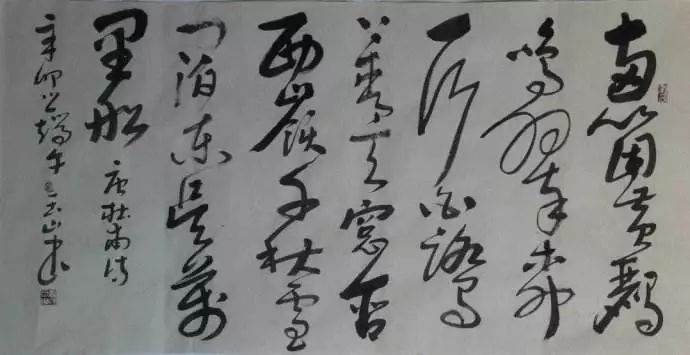 两箇黄鹂
鸣翠柳
一行白鹭
上青天窓含
西嶺千秋雪
门泊东吴萬
里船
唐杜甫诗
辛卯 端午